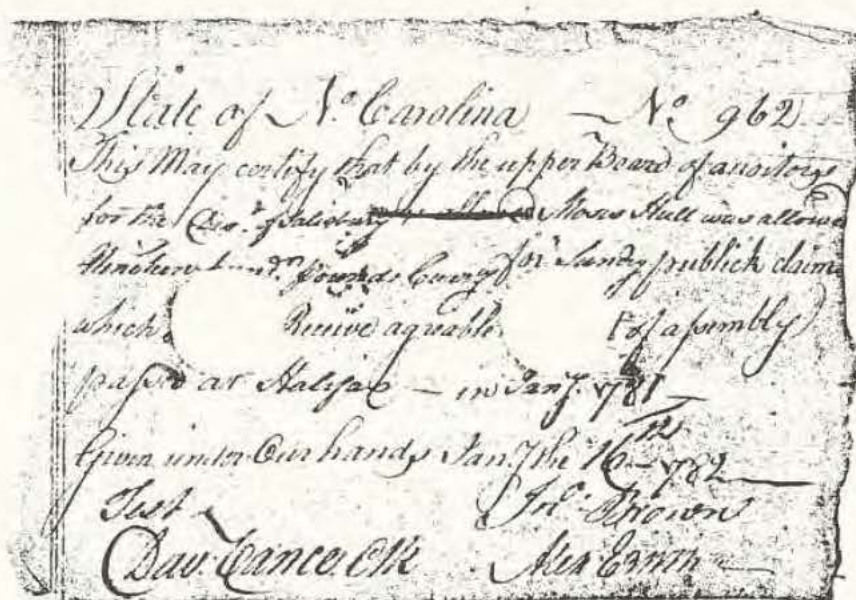 State of No. Carolina — No. 962
This May certify that by the upper Board of auditors
for the Dist. of Salisbury Moses Hull was allowed
pounds Curry for Sundry publick claims
which Receive agreable of assembly
passed at Halifax — in Jany. 1781
Given under Our hands Jany the 16th 1782
Test Jno. Brown
Dav. Vance Clk Alex